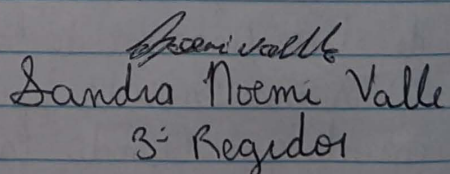 Noemi Valle
Sandra Noemi Valle
3º Regidor